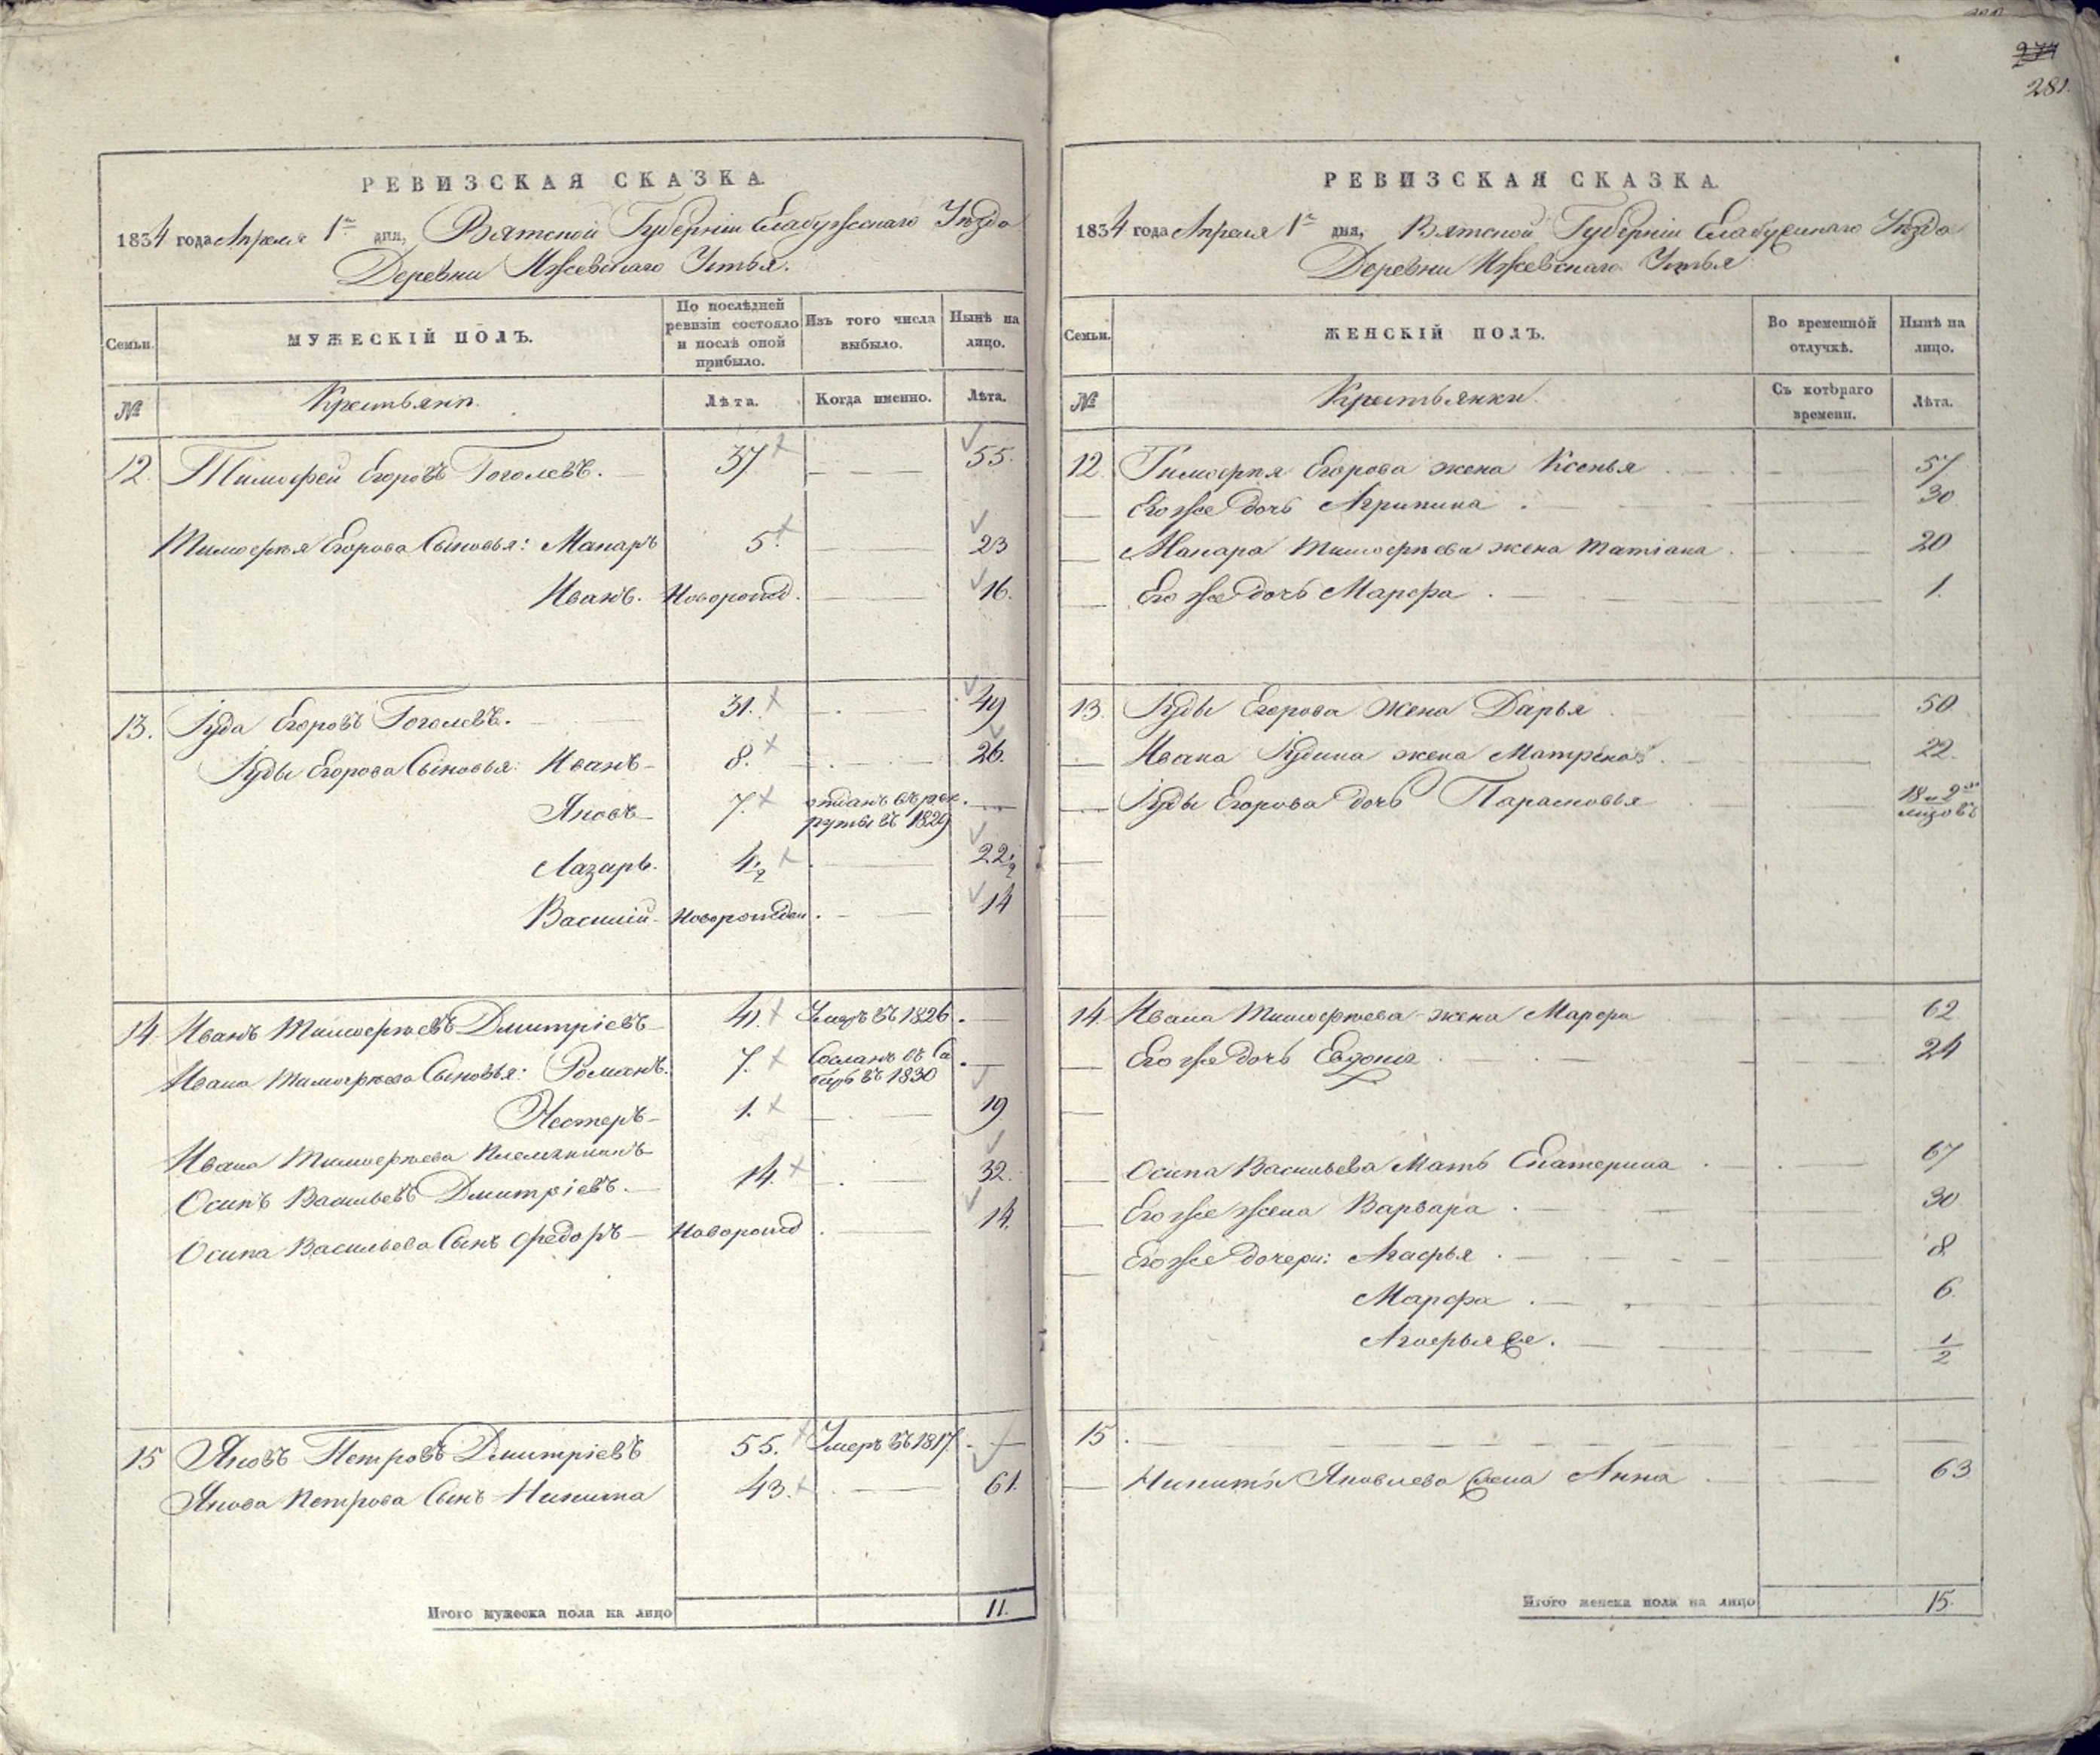 281.
РЕВИЗСКАЯ СКАЗКА.
1834 года Апреля 1го дня, Вятской Губерніи Елабужскаго Уѣзда
Деревни Ижевскаго Устья.
Семьи.
МУЖЕСКІЙ ПОЛЪ.
По послѣдней ревизіи состояло и послѣ оной прибыло.
Изъ того числа выбыло.
Нынѣ на лицо.
№
Крестьянъ.
Лѣта.
Когда именно.
Лѣта.
12. Тимофей Егоровъ Гоголевъ. 37 55.
Тимофея Егорова Сыновья: Макаръ 5. 23
Иванъ. Новорожд. 16.
13. Іуда Егоровъ Гоголевъ. 31. 49
Іуды Егорова Сыновья: Иванъ 8. 26.
Яковъ 7. отданъ въ рек
руты въ 1829
Лазарь. 4½ 22½
Василій Новорожден. 14
14. Иванъ Тимофѣевъ Дмитріевъ 41. Умеръ въ 1826.
Ивана Тимофѣева Сыновья: Романъ. 7. Сосланъ въ Си
бирь въ 1830
Нестеръ 1. 19
Ивана Тимофѣева племянникъ
Осипъ Васильевъ Дмитріевъ. 14. 32.
Осипа Васильева Сынъ Федоръ Новорожд 14.
15 Яковъ Петровъ Дмитріевъ 55. Умеръ въ 1817.
Якова Петрова Сынъ Никита 43. 61.
Итого мужеска пола на лицо 11.
РЕВИЗСКАЯ СКАЗКА.
1834 года Апреля 1го дня, Вятской Губерніи Елабужскаго Уѣзда
Деревни Ижевскаго Устья
Семьи.
ЖЕНСКІЙ ПОЛЪ.
Во временной отлучкѣ.
Нынѣ на лицо.
№
Крестьянки.
Съ котораго времени.
Лѣта.
12. Тимофея Егорова жена Ксенья 57
Его же дочь Агрипина 30
Макара Тимофѣева жена Татіана 20
Его же дочь Марфа 1.
13. Іуды Егорова жена Дарья 50.
Ивана Іудина жена Матрена 22.
Іуды Егорова дочь Парасковья 18 и 9
мѣсяцовъ
14. Ивана Тимофѣева жена Марфа 62
Его же дочь Евдокія 24
Осипа Васильева Мать Екатерина 67
Его же жена Варвара 30
Его же дочери: Агафья 8.
Марфа 6.
Агафья 2я. ½
15.
Никиты Яковлева жена Анна 63
Итого женска пола на лицо 15.